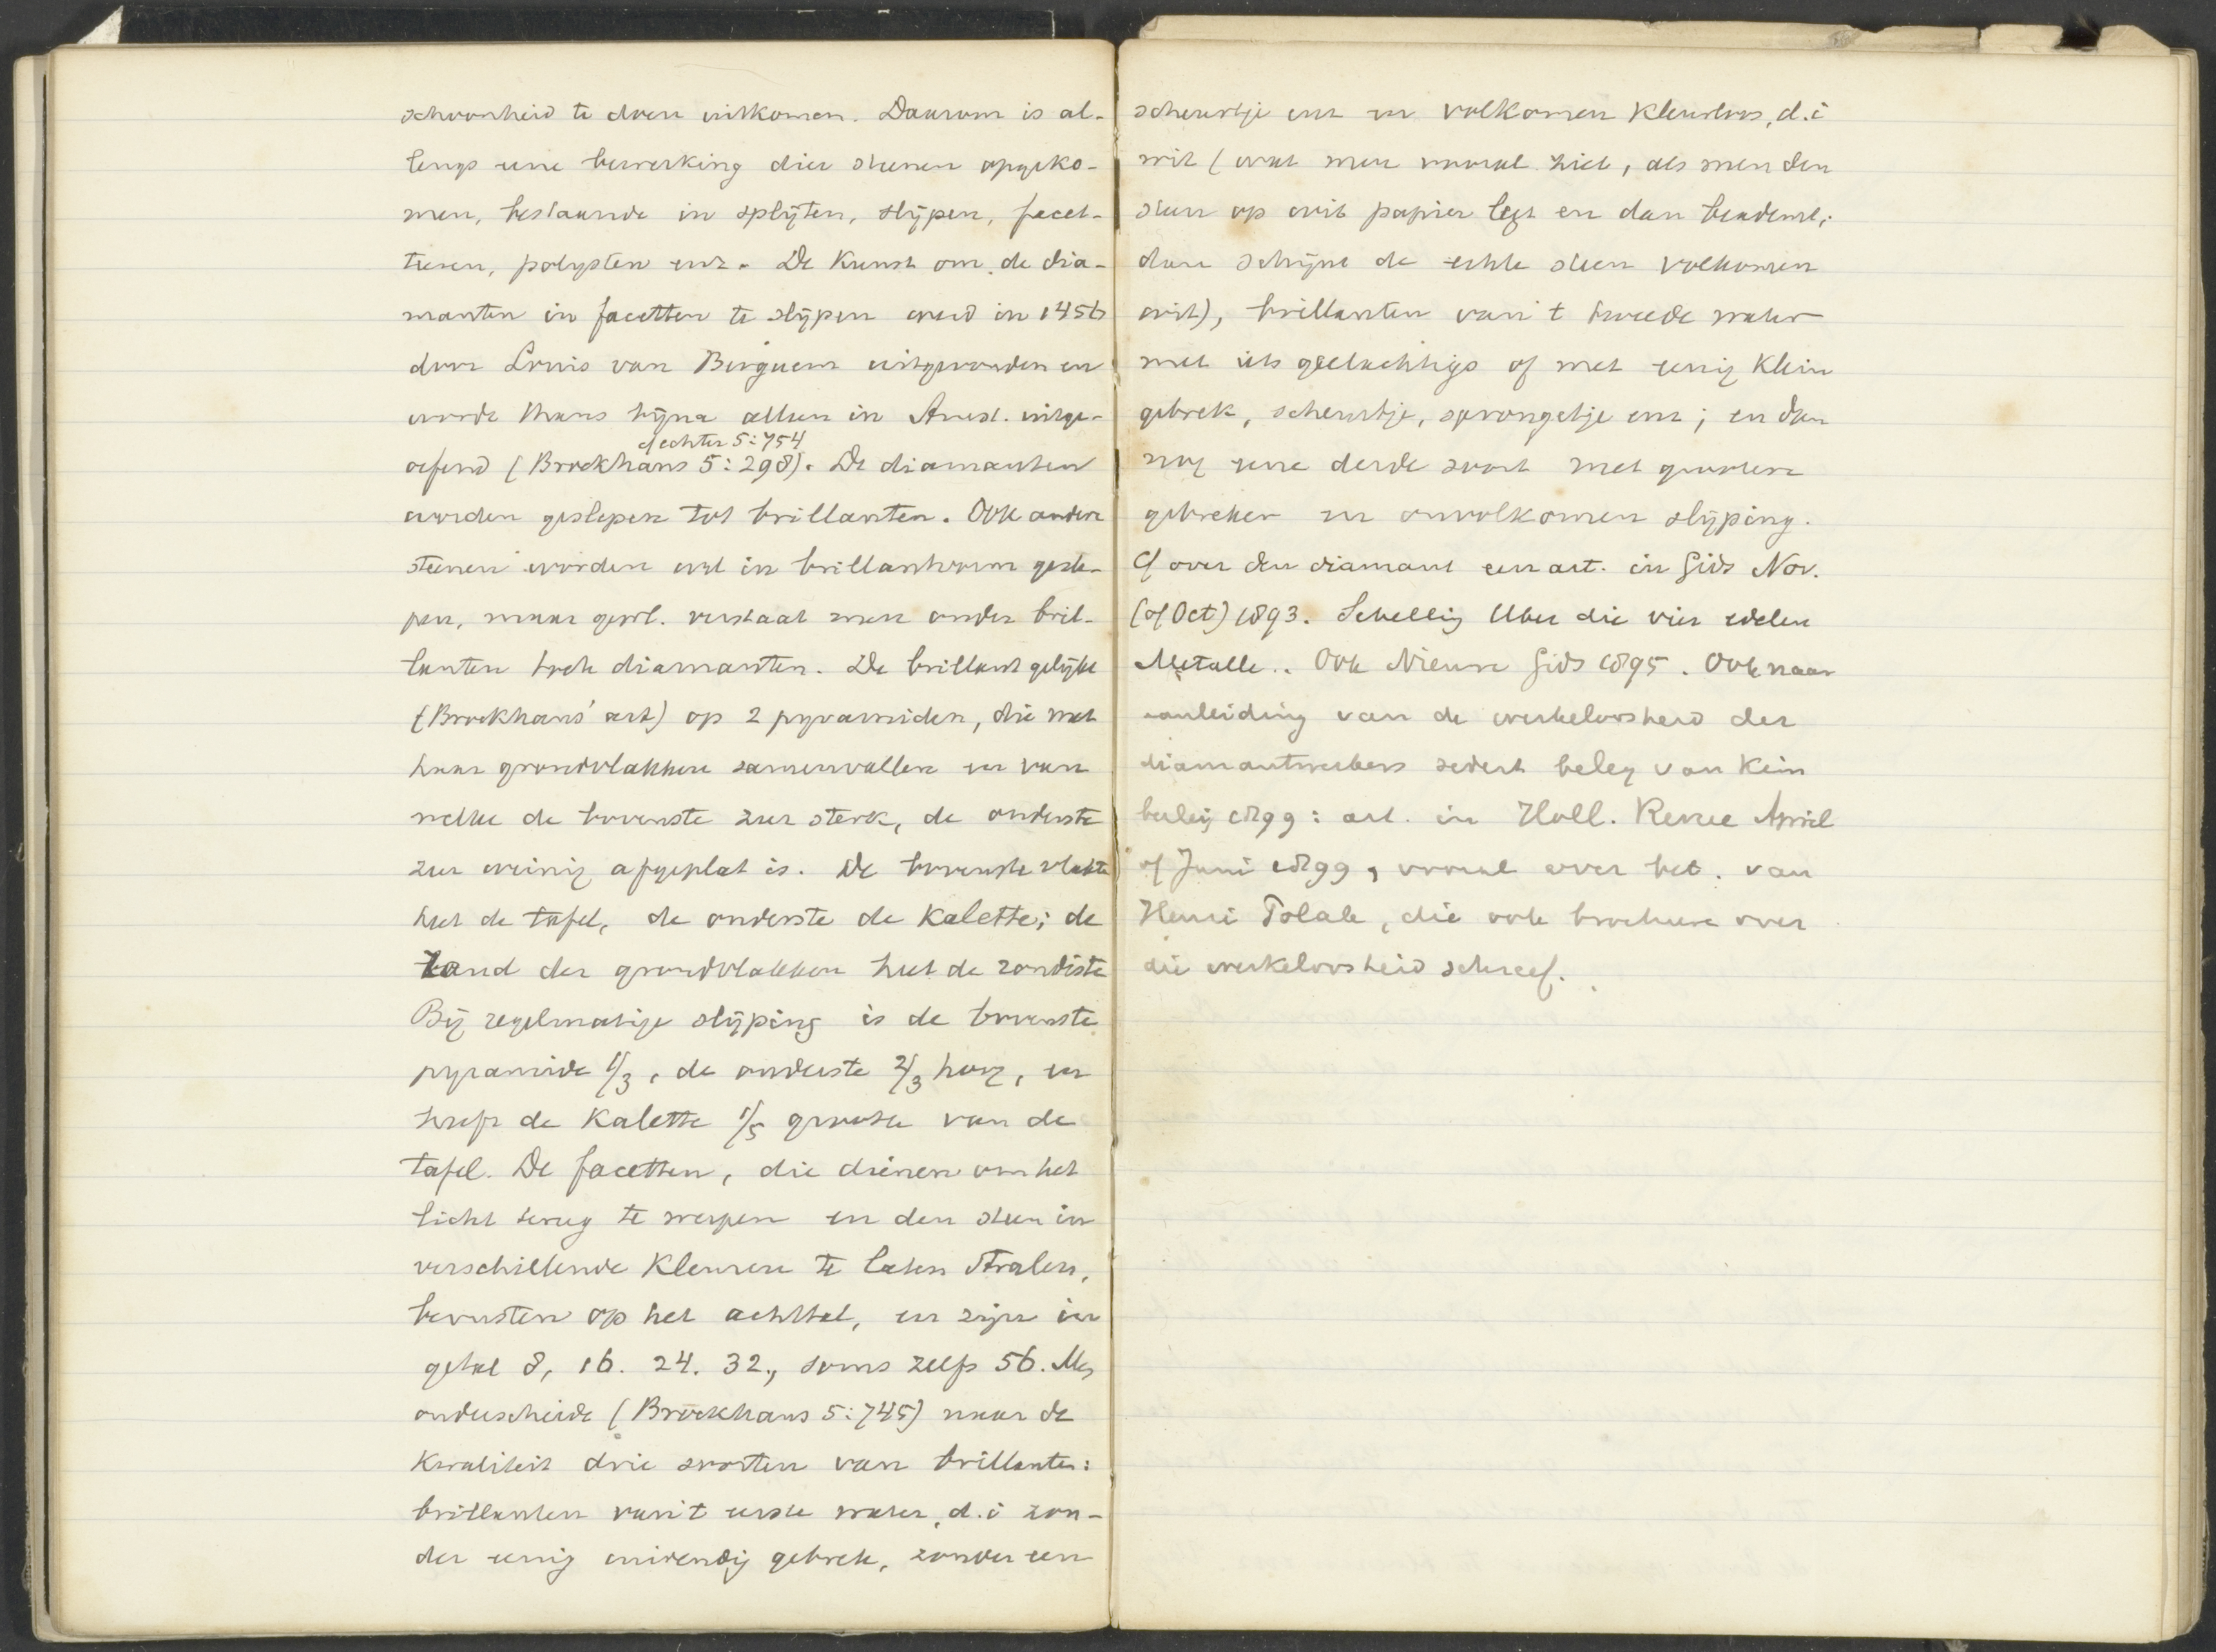 schoonheid te doen uitkomen. Daarom is al-
lengs eene bewerking dier steenen opgeko-
men, bestaande in splijten, slijpen, facet-
teeren, polysten enz. De Kunst om de dia-
manten in facetten te slijpen werd in 1456
door Louis van Berguem uitgevonden en
wordt thans bijna alleen in Amst. uitge-
cf echter 5:754
oefend (Brockhaus 5:298). De diamanten
worden geslepen tot brillanten. Ook andere
steenen worden wel in brillantvorm gesle-
pen, maar gewl. verstaat men onder bril-
lanten toch diamanten. De brillant gelijkt
(Brockhaus' art) op 2 pyramiden, die met
haar grondvlakken samenvallen en van
welke de bovenste zeer sterk, de onderste
zeer weinig afgeplat is. De bovenste vlakte
heet de tafel, de onderste de Kalette; de
rand der grondvlakken heet de rondiste
Bij regelmatige slijping is de bovenste
pyramide 1/3, de onderste 2/3 hoog, en
heeft de Kalette 1/5 grootte van de
tafel. De facetten, die dienen om het
licht terug te werpen en den steen in
verschillende Kleuren te laten stralen,
berusten op het achttal, en zijn in
getal 8, 16. 24. 32., soms zelfs 56. Men
onderscheidt (Brockhaus 5:745) naar de
Kwaliteit drie soorten van brillanten:
brillanten van't eerste water, d.i zon-
der eenig inwendig gebrek, zonder een
scheurtje enz en volkomen Kleurloos, d.i
wit (wat men vooral ziet, als men den
steen op wit papier legt en dan beademt;
dan schijnt de echte steen volkomen
wit), brillanten van't tweede water
met iets geelachtigs of met eenig Klein
gebrek, scheurtje, sprongetje enz; en dan
nog eene derde soort met grootere
gebreken en onvolkomen slijping.
Cf over den diamant een art. in Gids Nov.
(of Oct) 1893. Schellig Uber die vier edelen
Metalle.. Ook Nieuwe Gids 1895. Ook naar
aanleiding van de werkeloosheid der
diamantwerkers sedert beleg van Kim
berley 1899: art. in Holl. Revue April
of Juni 1899, vooral over het. van
Henri Polak, die ook brochure over
die werkeloosheid schreef.